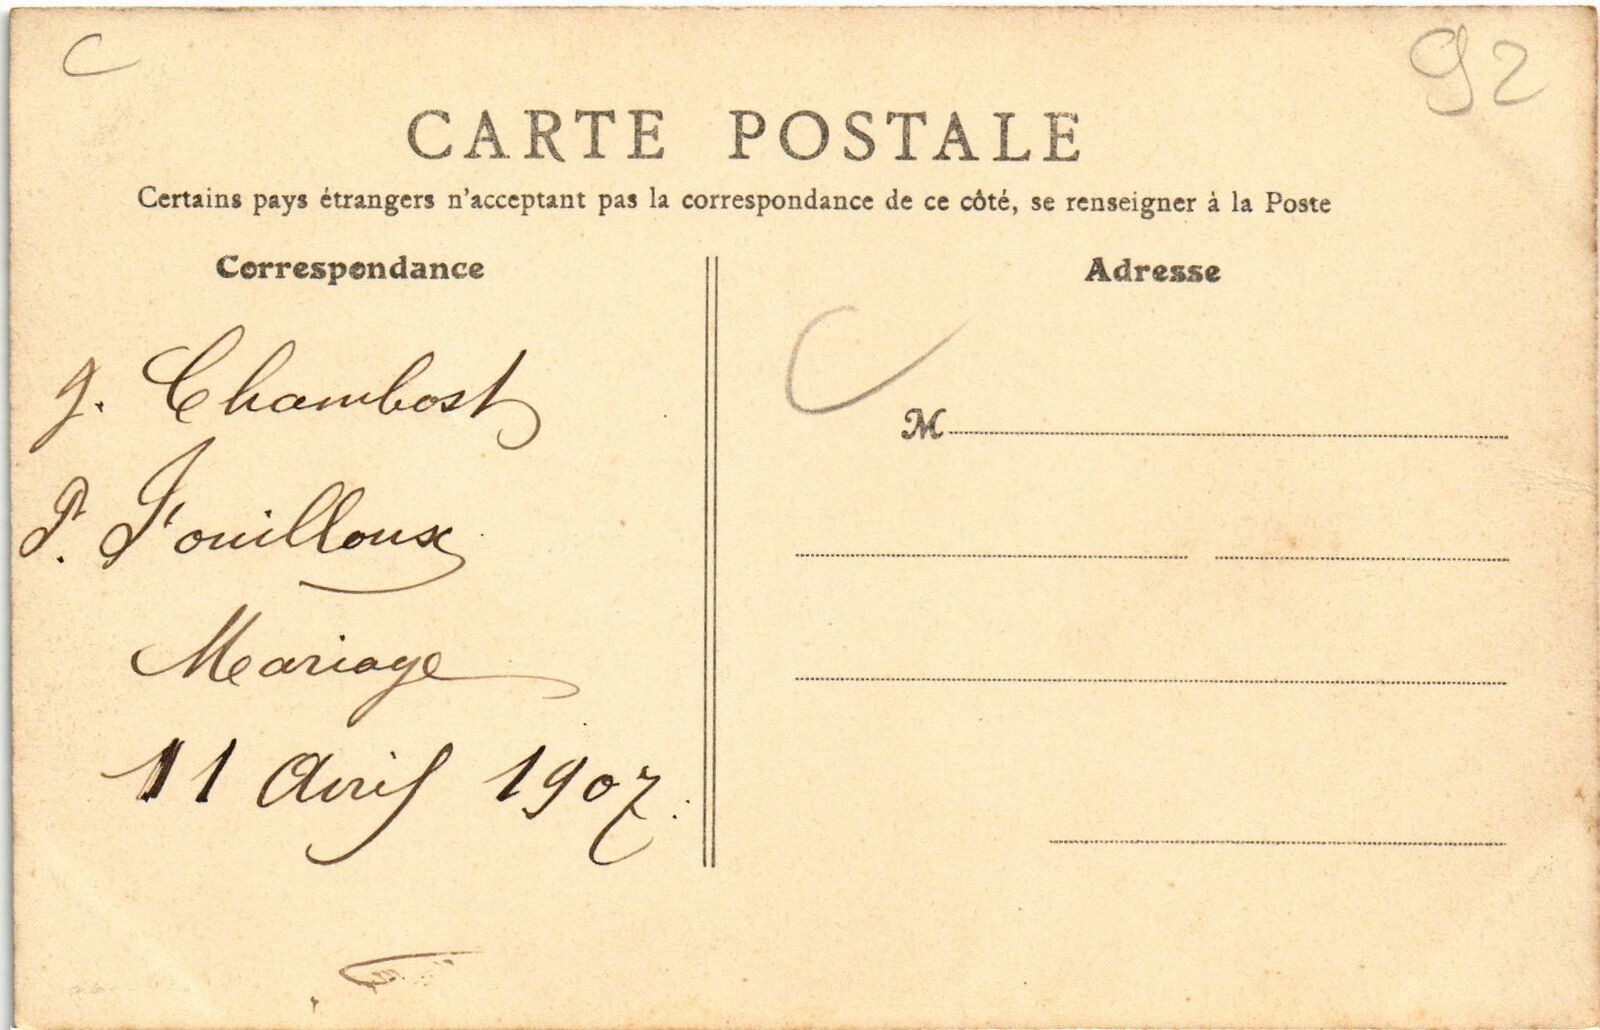 C
92
CARTE POSTALE
Certains pays étrangers n'acceptant pas la correspondance de ce côté, se renseigner à la Poste
Correspondance
J. Chambost
P. Fouilloux
Mariage
11 Avril 1907.
Adresse
C
M